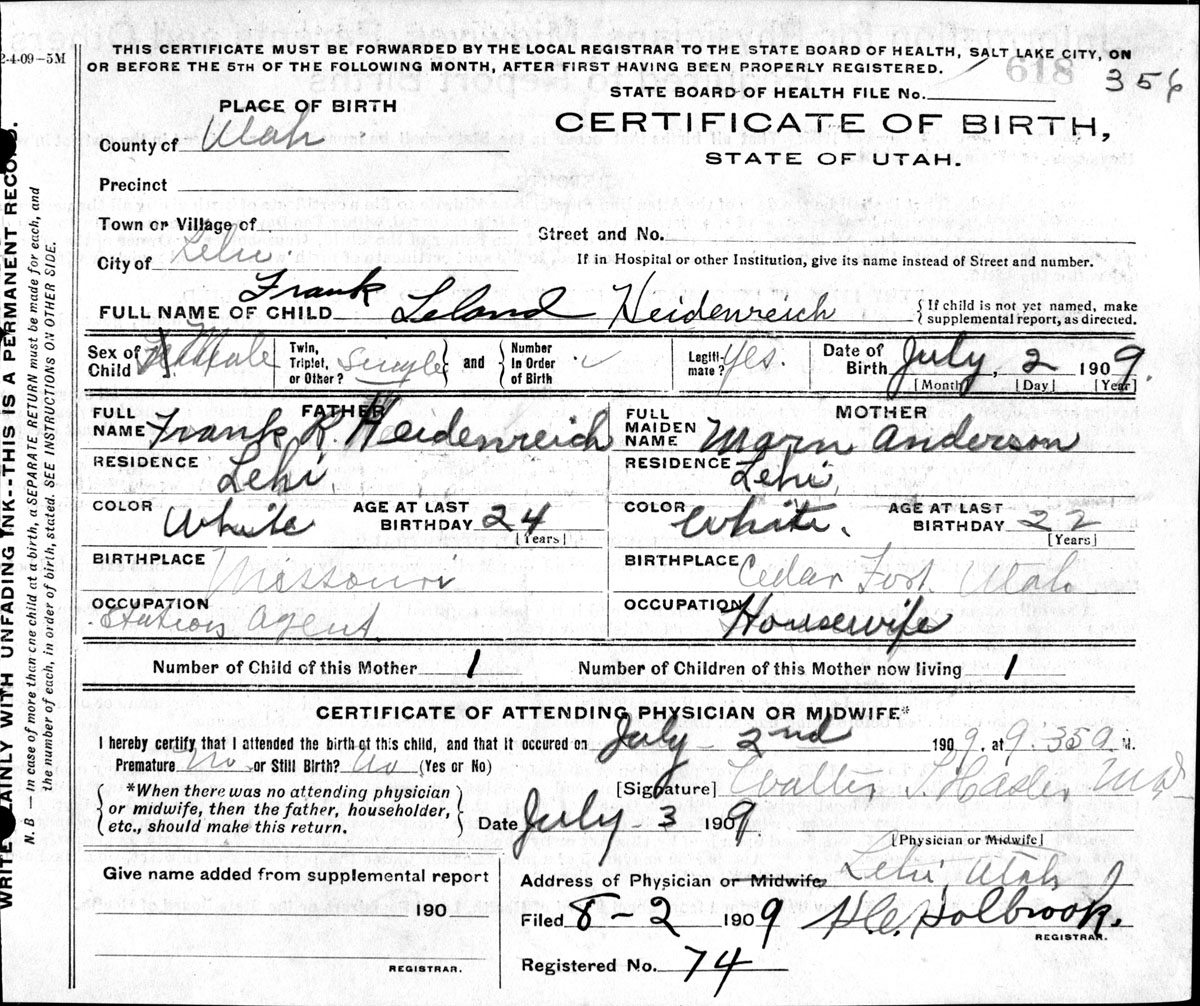 2-4-09-5M
THIS CERTIFICATE MUST BE FORWARDED BY THE LOCAL REGISTRAR TO THE STATE BOARD OF HEALTH, SALT LAKE CITY, ON
OR BEFORE THE 5TH OF THE FOLLOWING MONTH, AFTER FIRST HAVING BEEN PROPERLY REGISTERED.
618
356
STATE BOARD OF HEALTH FILE No.
PLACE OF BIRTH
CERTIFICATE OF BIRTH,
STATE OF UTAH.
County of Utah
Precinct
Town or Village of
Street and No.
City of Lehi
If in Hospital or other Institution, give its name instead of Street and number.
FULL NAME OF CHILD Frank Leland Heidenreich {If child is not yet named, make supplemental report, as directed.
Sex of Child Male
Twin, Triplet, or Other? Single } and { Number In Order of Birth
Legitimate? Yes.
Date of Birth July, 2 1909.
[Month] [Day] [Year]
FATHER
FULL NAME Frank R. Heidenreich
RESIDENCE Lehi.
COLOR White
AGE AT LAST BIRTHDAY 24
[Years]
BIRTHPLACE Missouri
OCCUPATION Station Agent.
MOTHER
FULL MAIDEN NAME Marn Anderson
RESIDENCE Lehi,
COLOR White.
AGE AT LAST BIRTHDAY 22
[Years]
BIRTHPLACE Cedar Fort. Utah
OCCUPATION Housewife
Number of Child of this Mother 1
Number of Children of this Mother now living 1
CERTIFICATE OF ATTENDING PHYSICIAN OR MIDWIFE*
I hereby certify that I attended the birth of this child, and that it occured on July 2nd 1909, at 9.35 a M.
Premature No or Still Birth? No (Yes or No)
*When there was no attending physician
or midwife, then the father, householder,
etc., should make this return.
[Signature] M.D.
Date July 3 1909.
[Physician or Midwife]
Give name added from supplemental report
190
REGISTRAR.
Address of Physician or Midwife Lehi, Utah
Filed 8-2 1909 Holbrook.
REGISTRAR.
Registered No. 74
WRITE PLAINLY WITH UNFADING INK--THIS IS A PERMANENT RECORD.
N. B — In case of more than one child at a birth, a SEPARATE RETURN must be made for each, and
the number of each, in order of birth, stated. SEE INSTRUCTIONS ON OTHER SIDE.